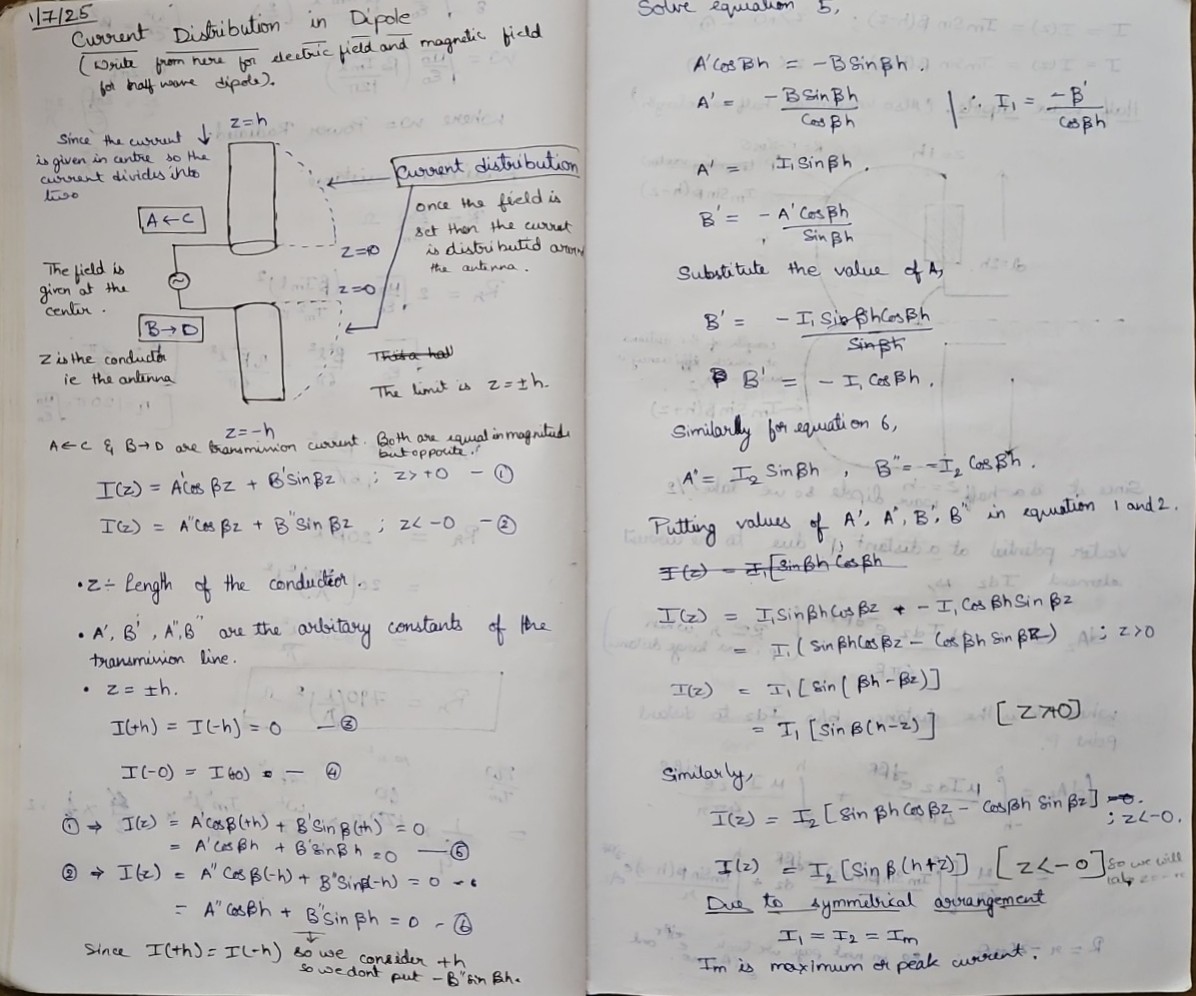 1/7/25
Current Distribution in Dipole
(Write from here for electric field and magnetic field
for half wave dipole).
z=h
Since the current
is given in centre so the
current divides into
two
Current distribution
A ← C
once the field is
set then the curret
is distributed
the antenna.
z=0
The field is
given at the
center.
z=0
B → D
z is the conductor
ie the antenna
The limit is z = ±h.
z=-h
A←C & B→D are transmission current. Both are equal in magnitude
but opposite.
I(z) = A'cos βz + B'Sin βz ; z>+0 - ①
I(z) = A"cos βz + B"Sin βz ; z<-0 - ②
• z ÷ Length of the conductor.
• A', B', A", B" are the arbitary constants of the
transmission line.
• z = ±h.
I(+h) = I(-h) = 0 - ③
I(-0) = I(+0) - ④
① ⇒ I(z) = A'cosβ(+h) + B'Sinβ(+h) = 0
= A'cosβh + B'sinβh = 0 - ⑤
② ⇒ I(z) = A"Cosβ(-h) + B"Sinβ(-h) = 0
= A"cosβh + B"sinβh = 0 - ⑥
Since I(+h) = I(-h) so we consider +h
so we dont put -B"sin βh.
Solve equation 5,
A'CosBh = -BSinβh.
A' = -BSinβh / Cosβh | ∴ I₁ = -B' / cosβh
A' = I₁Sinβh.
B' = -A'Cosβh / Sinβh
Substitute the value of A,
B' = -I₁SinβhCosβh / Sinβh
B' = -I₁CosBh.
Similarly for equation 6,
A" = I₂Sinβh, B" = -I₂Cosβh.
Putting values of A', A", B', B" in equation 1 and 2.
I(z) = I₁[sinβh Cosβh
I(z) = I₁SinβhCosβz + -I₁CosβhSinβz
= I₁(SinβhCosβz - Cosβh Sinβz) ; z>0
I(z) = I₁[Sin(βh-βz)]
= I₁[Sinβ(h-z)] [z>0]
Similarly,
I(z) = I₂[Sinβh Cosβz - Cosβh Sinβz]
; z<-0.
I(z) = I₂[Sinβ(h+z)] [z<-0] So we will
Due to symmetrical arrangement
I₁ = I₂ = Im
Im is maximum or peak current.